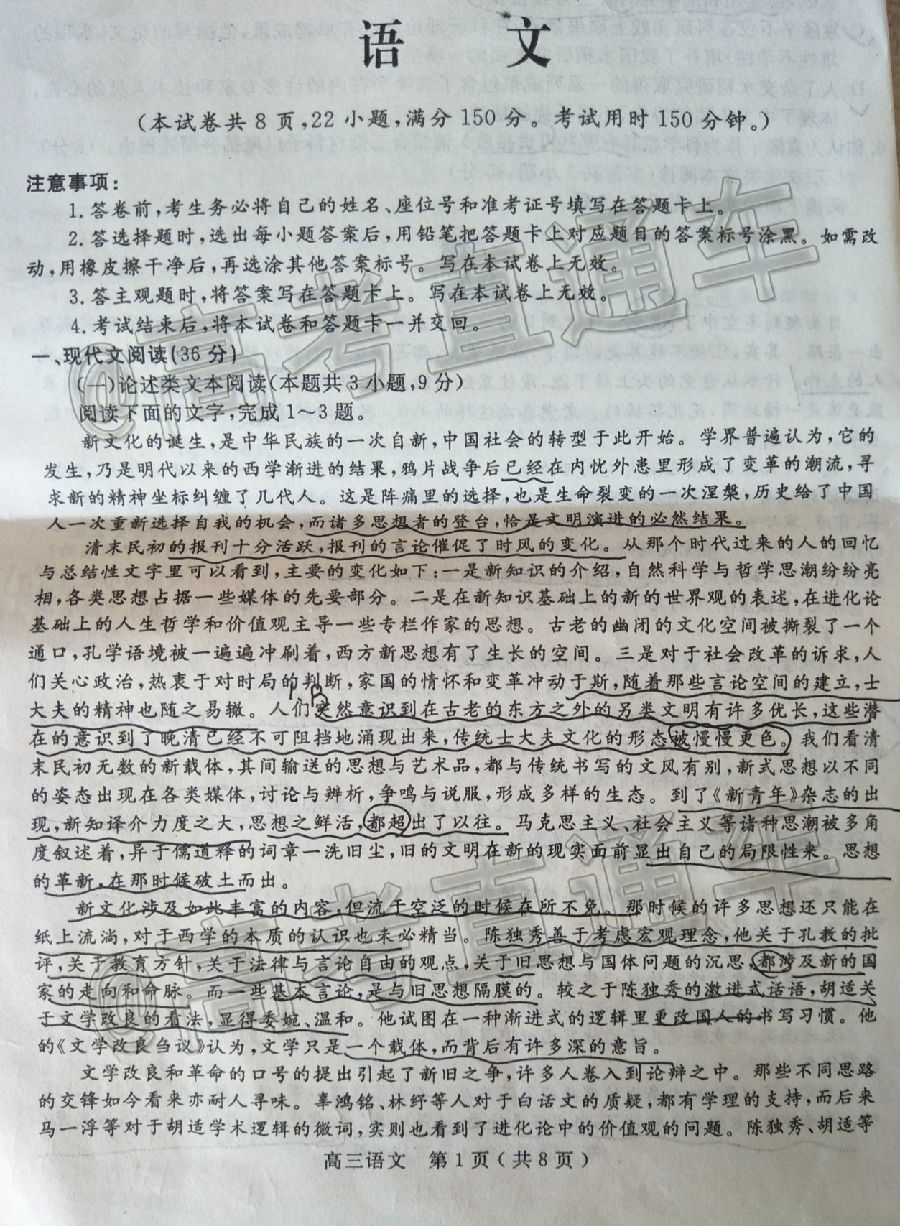 语 文
(本试卷共8页,22小题,满分150分。考试用时150分钟。)
注意事项:
1.答卷前,考生务必将自己的姓名、座位号和准考证号填写在答题卡上。
2.答选择题时,选出每小题答案后,用铅笔把答题卡上对应题目的答案标号涂黑。如需改
动,用橡皮擦干净后,再选涂其他答案标号。写在本试卷上无效。
3.答主观题时,将答案写在答题卡上。写在本试卷上无效。
4.考试结束后,将本试卷和答题卡一并交回。
一、现代文阅读(36分)
(一)论述类文本阅读(本题共3小题,9分)
阅读下面的文字,完成1~3题。
新文化的诞生,是中华民族的一次自新,中国社会的转型于此开始。学界普遍认为,它的
发生,乃是明代以来的西学渐进的结果,鸦片战争后已经在内忧外患里形成了变革的潮流,寻
求新的精神坐标纠缠了几代人。这是阵痛里的选择,也是生命裂变的一次涅槃,历史给了中国
人一次重新选择自我的机会,而诸多思想者的登台,恰是文明演进的必然结果。
清末民初的报刊十分活跃,报刊的言论催促了时风的变化。从那个时代过来的人的回忆
与总结性文字里可以看到,主要的变化如下:一是新知识的介绍,自然科学与哲学思潮纷纷亮
相,各类思想占据一些媒体的先要部分。二是在新知识基础上的新的世界观的表述,在进化论
基础上的人生哲学和价值观主导一些专栏作家的思想。古老的幽闭的文化空间被撕裂了一个
通口,孔学语境被一遍遍冲刷着,西方新思想有了生长的空间。三是对于社会改革的诉求,人
们关心政治,热衷于对时局的判断,家国的情怀和变革冲动于斯,随着那些言论空间的建立,士
大夫的精神也随之易辙。人们突然意识到在古老的东方之外的另类文明有许多优长,这些潜
在的意识到了晚清已经不可阻挡地涌现出来,传统士大夫文化的形态被慢慢更色。我们看清
末民初无数的新载体,其间输送的思想与艺术品,都与传统书写的文风有别,新式思想以不同
的姿态出现在各类媒体,讨论与辨析,争鸣与说服,形成多样的生态。到了《新青年》杂志的出
现,新知译介力度之大,思想之鲜活,都超出了以往。马克思主义、社会主义等诸种思潮被多角
度叙述着,异于儒道释的词章一洗旧尘,旧的文明在新的现实面前显出自己的局限性来。思想
的革新,在那时候破土而出。
新文化涉及如此丰富的内容,但流于空泛的时候在所不免。那时候的许多思想还只能在
纸上流淌,对于西学的本质的认识也未必精当。陈独秀善于考虑宏观理念,他关于孔教的批
评,关于教育方针,关于法律与言论自由的观点,关于旧思想与国体问题的沉思,都涉及新的国
家的走向和命脉。而一些基本言论,是与旧思想隔膜的。较之于陈独秀的激进式话语,胡适关
于文学改良的看法,显得委婉、温和。他试图在一种渐进式的逻辑里更改国人的书写习惯。他
的《文学改良刍议》认为,文学只是一个载体,而背后有许多深的意旨。
文学改良和革命的口号的提出引起了新旧之争,许多人卷入到论辩之中。那些不同思路
的交锋如今看来亦耐人寻味。辜鸿铭、林纾等人对于白话文的质疑,都有学理的支持,而后来
马一浮等对于胡适学术逻辑的微词,实则也看到了进化论中的价值观的问题。陈独秀、胡适等
高三语文 第1页(共8页)
@高考直通车
@高考直通车